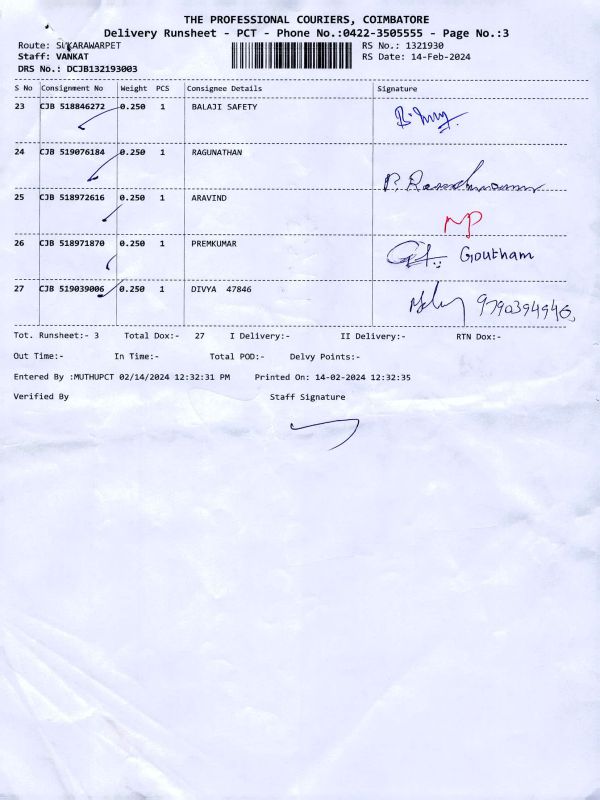 THE PROFESSIONAL COURIERS, COIMBATORE
Delivery Runsheet - PCT - Phone No.:0422-3505555 - Page No.:3
Route: SUKARAWARPET
RS No.: 1321930
Staff: VANKAT
RS Date: 14-Feb-2024
DRS No.: DCJB132193003
S No Consignment No Weight PCS Consignee Details Signature
23 CJB 518846272 0.250 1 BALAJI SAFETY
24 CJB 519076184 0.250 1 RAGUNATHAN
25 CJB 518972616 0.250 1 ARAVIND
NP
26 CJB 518971870 0.250 1 PREMKUMAR Goutham
27 CJB 519039006 0.250 1 DIVYA 47846
9790394946
Tot. Runsheet:- 3 Total Dox:- 27 I Delivery:- II Delivery:- RTN Dox:-
Out Time:- In Time:- Total POD:- Delvy Points:-
Entered By :MUTHUPCT 02/14/2024 12:32:31 PM Printed On: 14-02-2024 12:32:35
Verified By Staff Signature